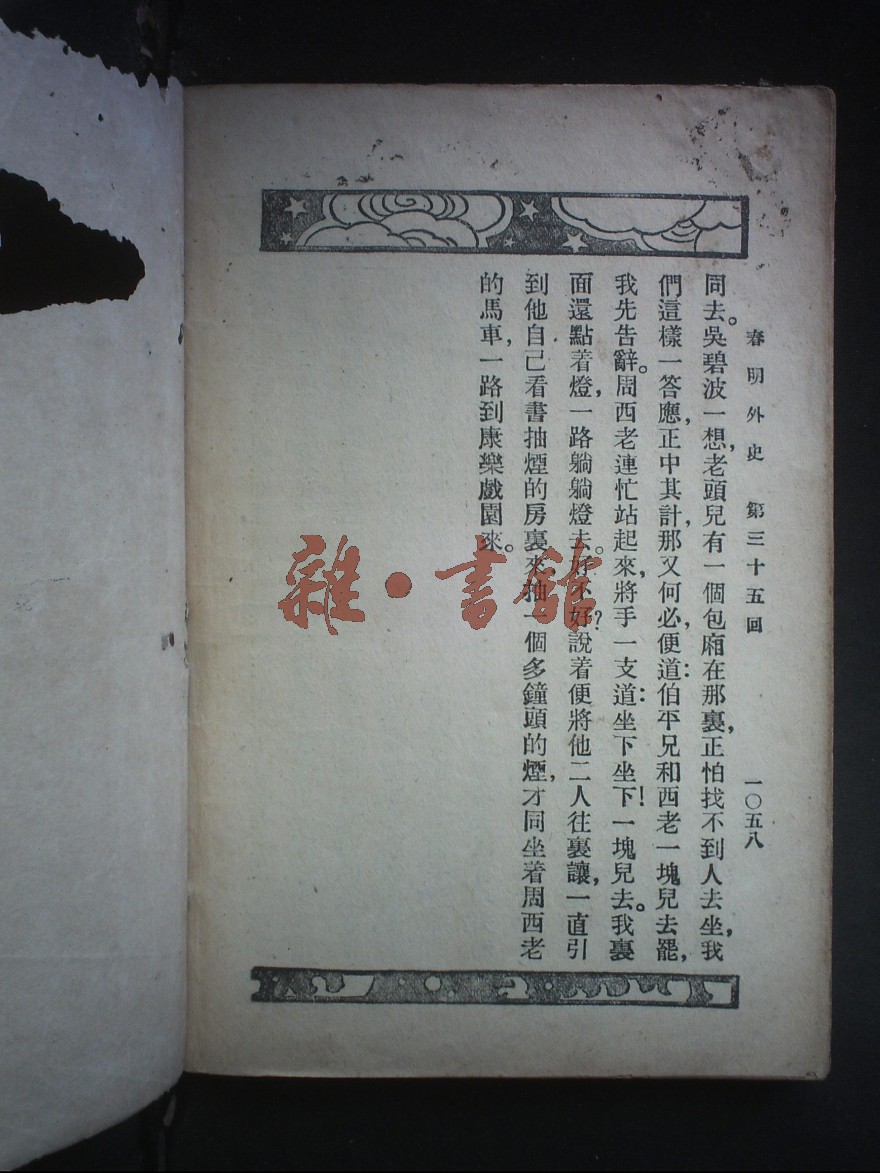 春明外史 第三十五回 一〇五八
同去。吳碧波一想，老頭兒有一個包廂在那裏，正怕找不到人去坐，我
們這樣一答應，正中其計，那又何必，便道：伯平兄和西老一塊兒去罷，
我先告辭。周西老連忙站起來，將手一支道：坐下坐下！一塊兒去。我裏
面還點着燈，一路躺躺燈去。好不好？說着便將他二人往裏讓，一直引
到他自己看書抽煙的房裏來，抽一個多鐘頭的煙，才同坐着周西老
的馬車，一路到康樂戲園來。
雜·書館